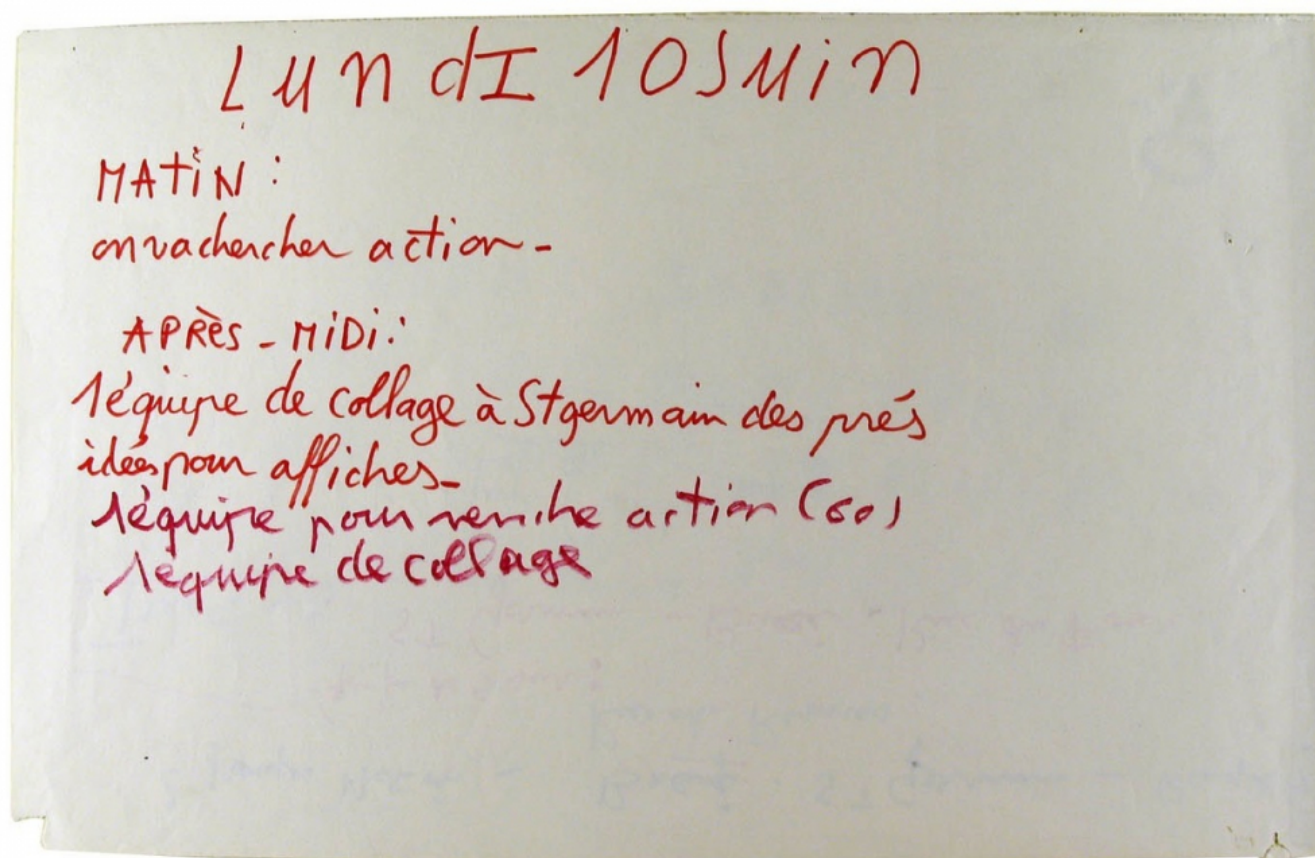 Lundi 10 Juin
MATiN :
on va chercher action -
APRÈS - MiDi :
1 équipe de collage à St germain des prés
idées pour affiches -
1 équipe pour vendre action (60)
1 équipe de collage